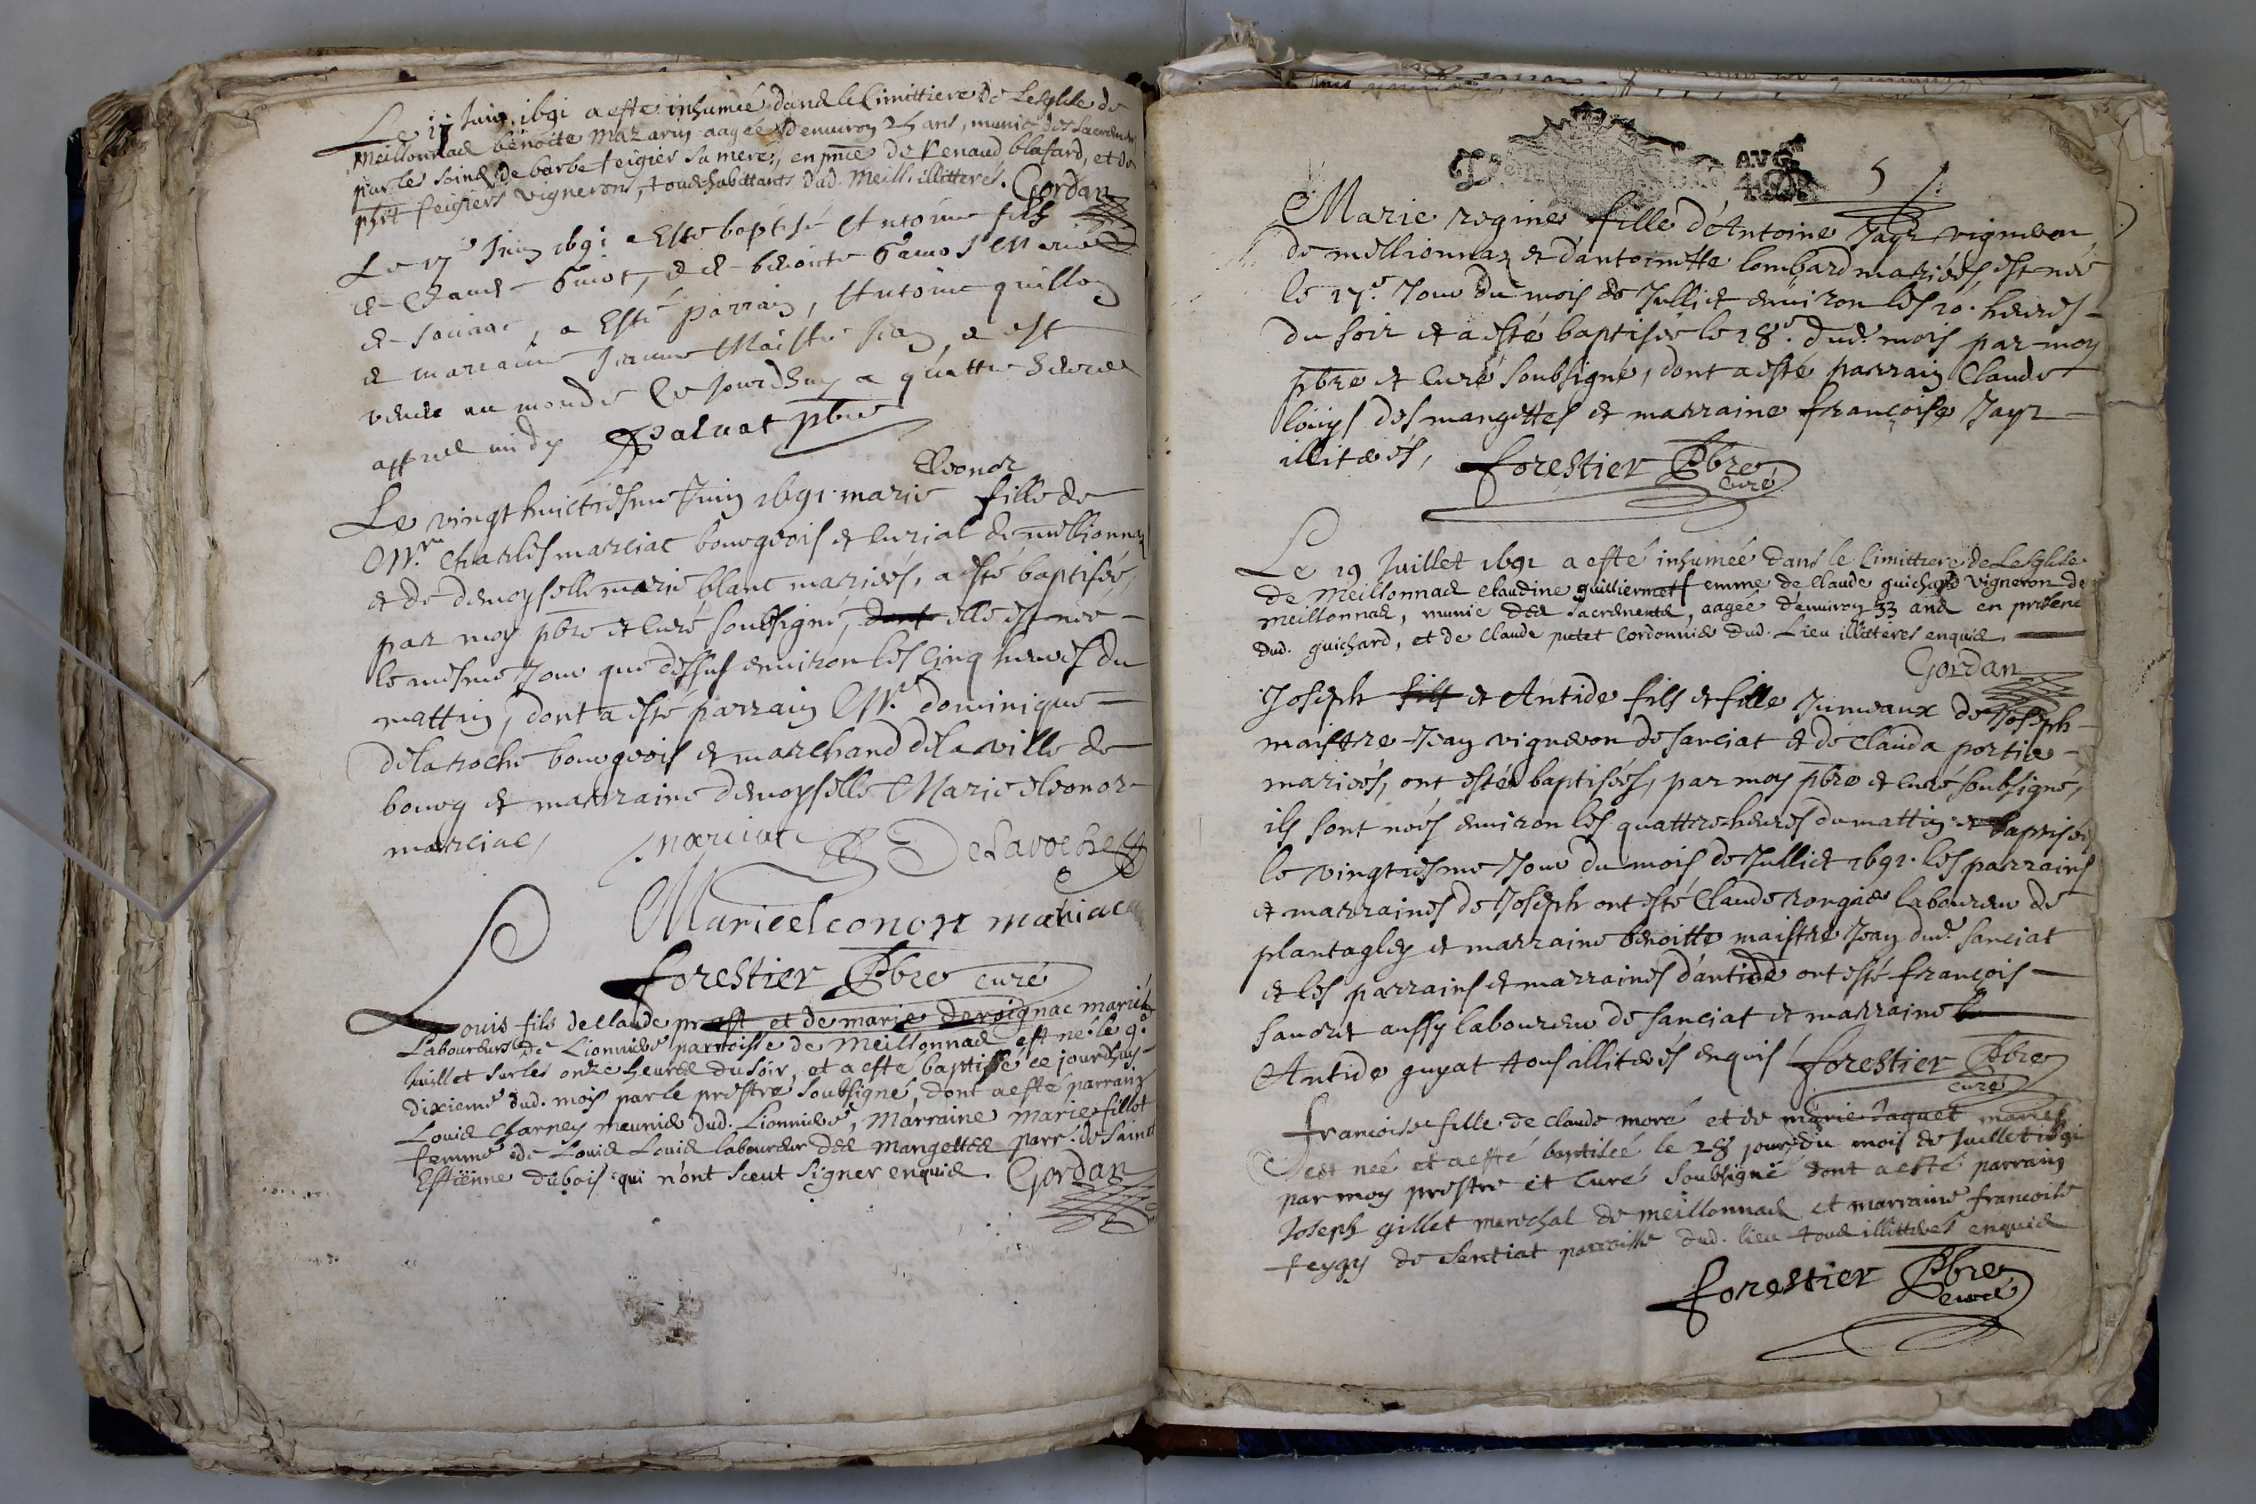 Le 17 Juin 1691 a esté inhumée dans le Cimittiere de Leglise de
Meillonnas benoite Mazarin aagée denviron 25 ans, munie des Sacremens
par les soins de barbe feigier sa mere, en pnce de Renaud blafard, et de
phit feigiers vignerons, tous habittants dud. Meill. illitteres. Gordan
Le 17e Juin 1691 a Esté baptisé Antoine fils
de Claude Guiot, & de benoitte
de sanciac, a Esté parrain, Antoine quillon
& marraine Jeanne Maistre Jean, & est
venue au monde Ce Jourdhuy a quattre heures
appres midy Palvat pbre
Eleonor
Le vingt huictiesme Juin 1691 marie fille de
Mre. Charles marciat bourgeois et curial de millionnaz
et de demoyselle marie blanc mariés, a esté baptisée
par moy pbre et curé soubsigné, dont elle est née
le mesme Jour que dessus environ les cinq heures du
mattin, dont a esté parrain Mr. dominique
delaroche bourgeois et marchand de la ville de
bourg et marraine demoyselle Marie eleonor
marciat, marciat Delaroche
Marie elconor marciat
forestier Pbre curé
Louis fils de Claude prost et de marie deroignac mariés
Laboureurs de Lionnieres parroisse de Meillonnas est né le 9e
Juillet sur les onze heures du soir, et a esté baptissé ce jourdhuy
dixieme dud. mois par le prestre soubsigné, dont a esté parrain
Louis Charney meunier dud. Lionnieres, Marraine Marie fillot
femme de Louis Louis laboureur des Mangettes parr. de Saint
Estienne dubois qui n'ont sceut signer enquis. Gordan
AVG
5
Marie regine fille d'Antoine Jayr vigneron
de mellionnaz et d'antoinette lombard mariés, est née
le 17e. Jour du mois de Julliet environ les 10. heures
du soir et a esté baptisée le 18e. dud. mois par moy
pbre et curé soubsigné, dont a esté parrain Claude
louys des mangettes et marraine françoise Jayr
illiterés, forestier Pbre
curé
Le 19 Juillet 1691 a esté inhumée dans le Cimittiere de Leglise
de Meillonnas Claudine guilliermet femme de Claude guichard vigneron de
meillonnas, munie des Sacrements, aageé d'environ 33 ans en presence
dud. guichard, et de Claude putet Cordonnier dud. Lieu illitteres enquis.
Gordan
Joseph fils et Antide fils et fille Jumeaux de Joseph
maistre Jean vigneron de sanciat et de Clauda portier
mariés, ont estés baptisés, par moy pbre et curé soubsigné,
ils sont nés environ les quattre heures du mattin et baptisés
le vingtiesme Jour du mois de Julliet 1691. les parrains
et marraines de Joseph ont esté Claude rongier laboureur de
plantagley et marraine benoitte maistre Jean dud. sanciat
et les parrains et marraines d'antide ont esté françois
sandrt aussy laboureur de sanciat et marraine
Antide guyat tous illiterés enquis forestier Pbre
curé
françoise fille de Claude moré et de marie Jaquet mariés
est neé et a esté baptiseé le 28 jour du mois de Juillet 1691
par moy prestre et Curé soubsigné dont a esté parrain
Joseph gillet mareschal de meillonnas et marraine françoise
feygy de Santiat parroisse dud. lieu tous illitteres enquis
forestier Pbre
curé